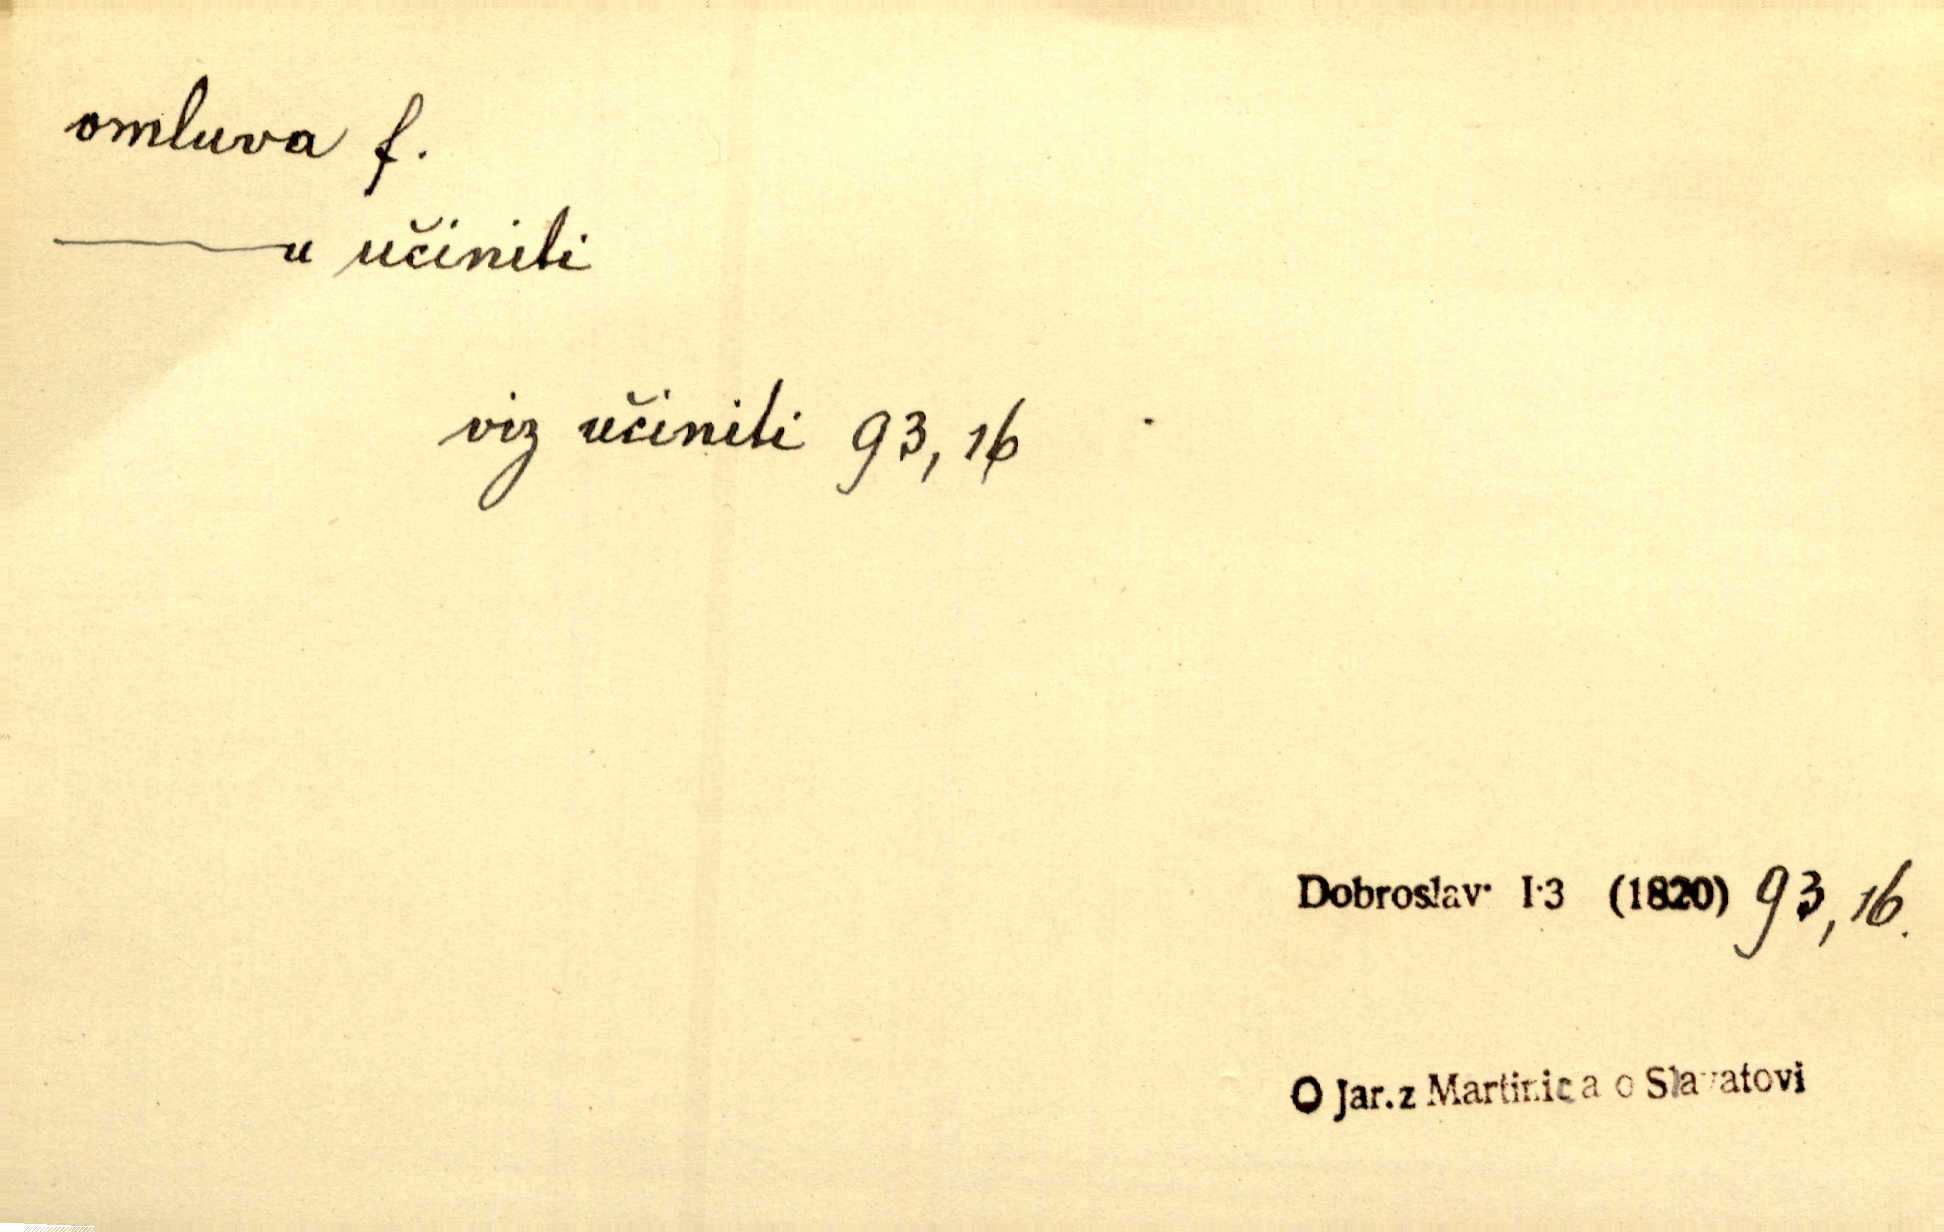 omluva f.
——u učiniti
viz učiniti 93,16
Dobroslav I·3 (1820) 93,16.
O Jar. z Martinic a o Slavatovi